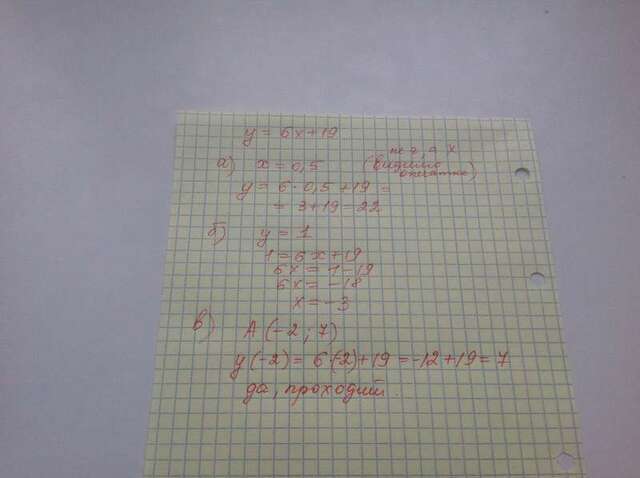 y = 6x+19
не г, а х
а) x = 0,5 (видимо
опечатка)
y = 6·0,5+19 =
= 3+19=22
б) y = 1
1=6x+19
6x = 1-19
6x = -18
x = -3
в) A(-2;7)
y(-2) = 6·(-2)+19 = -12+19 = 7
да, проходит.